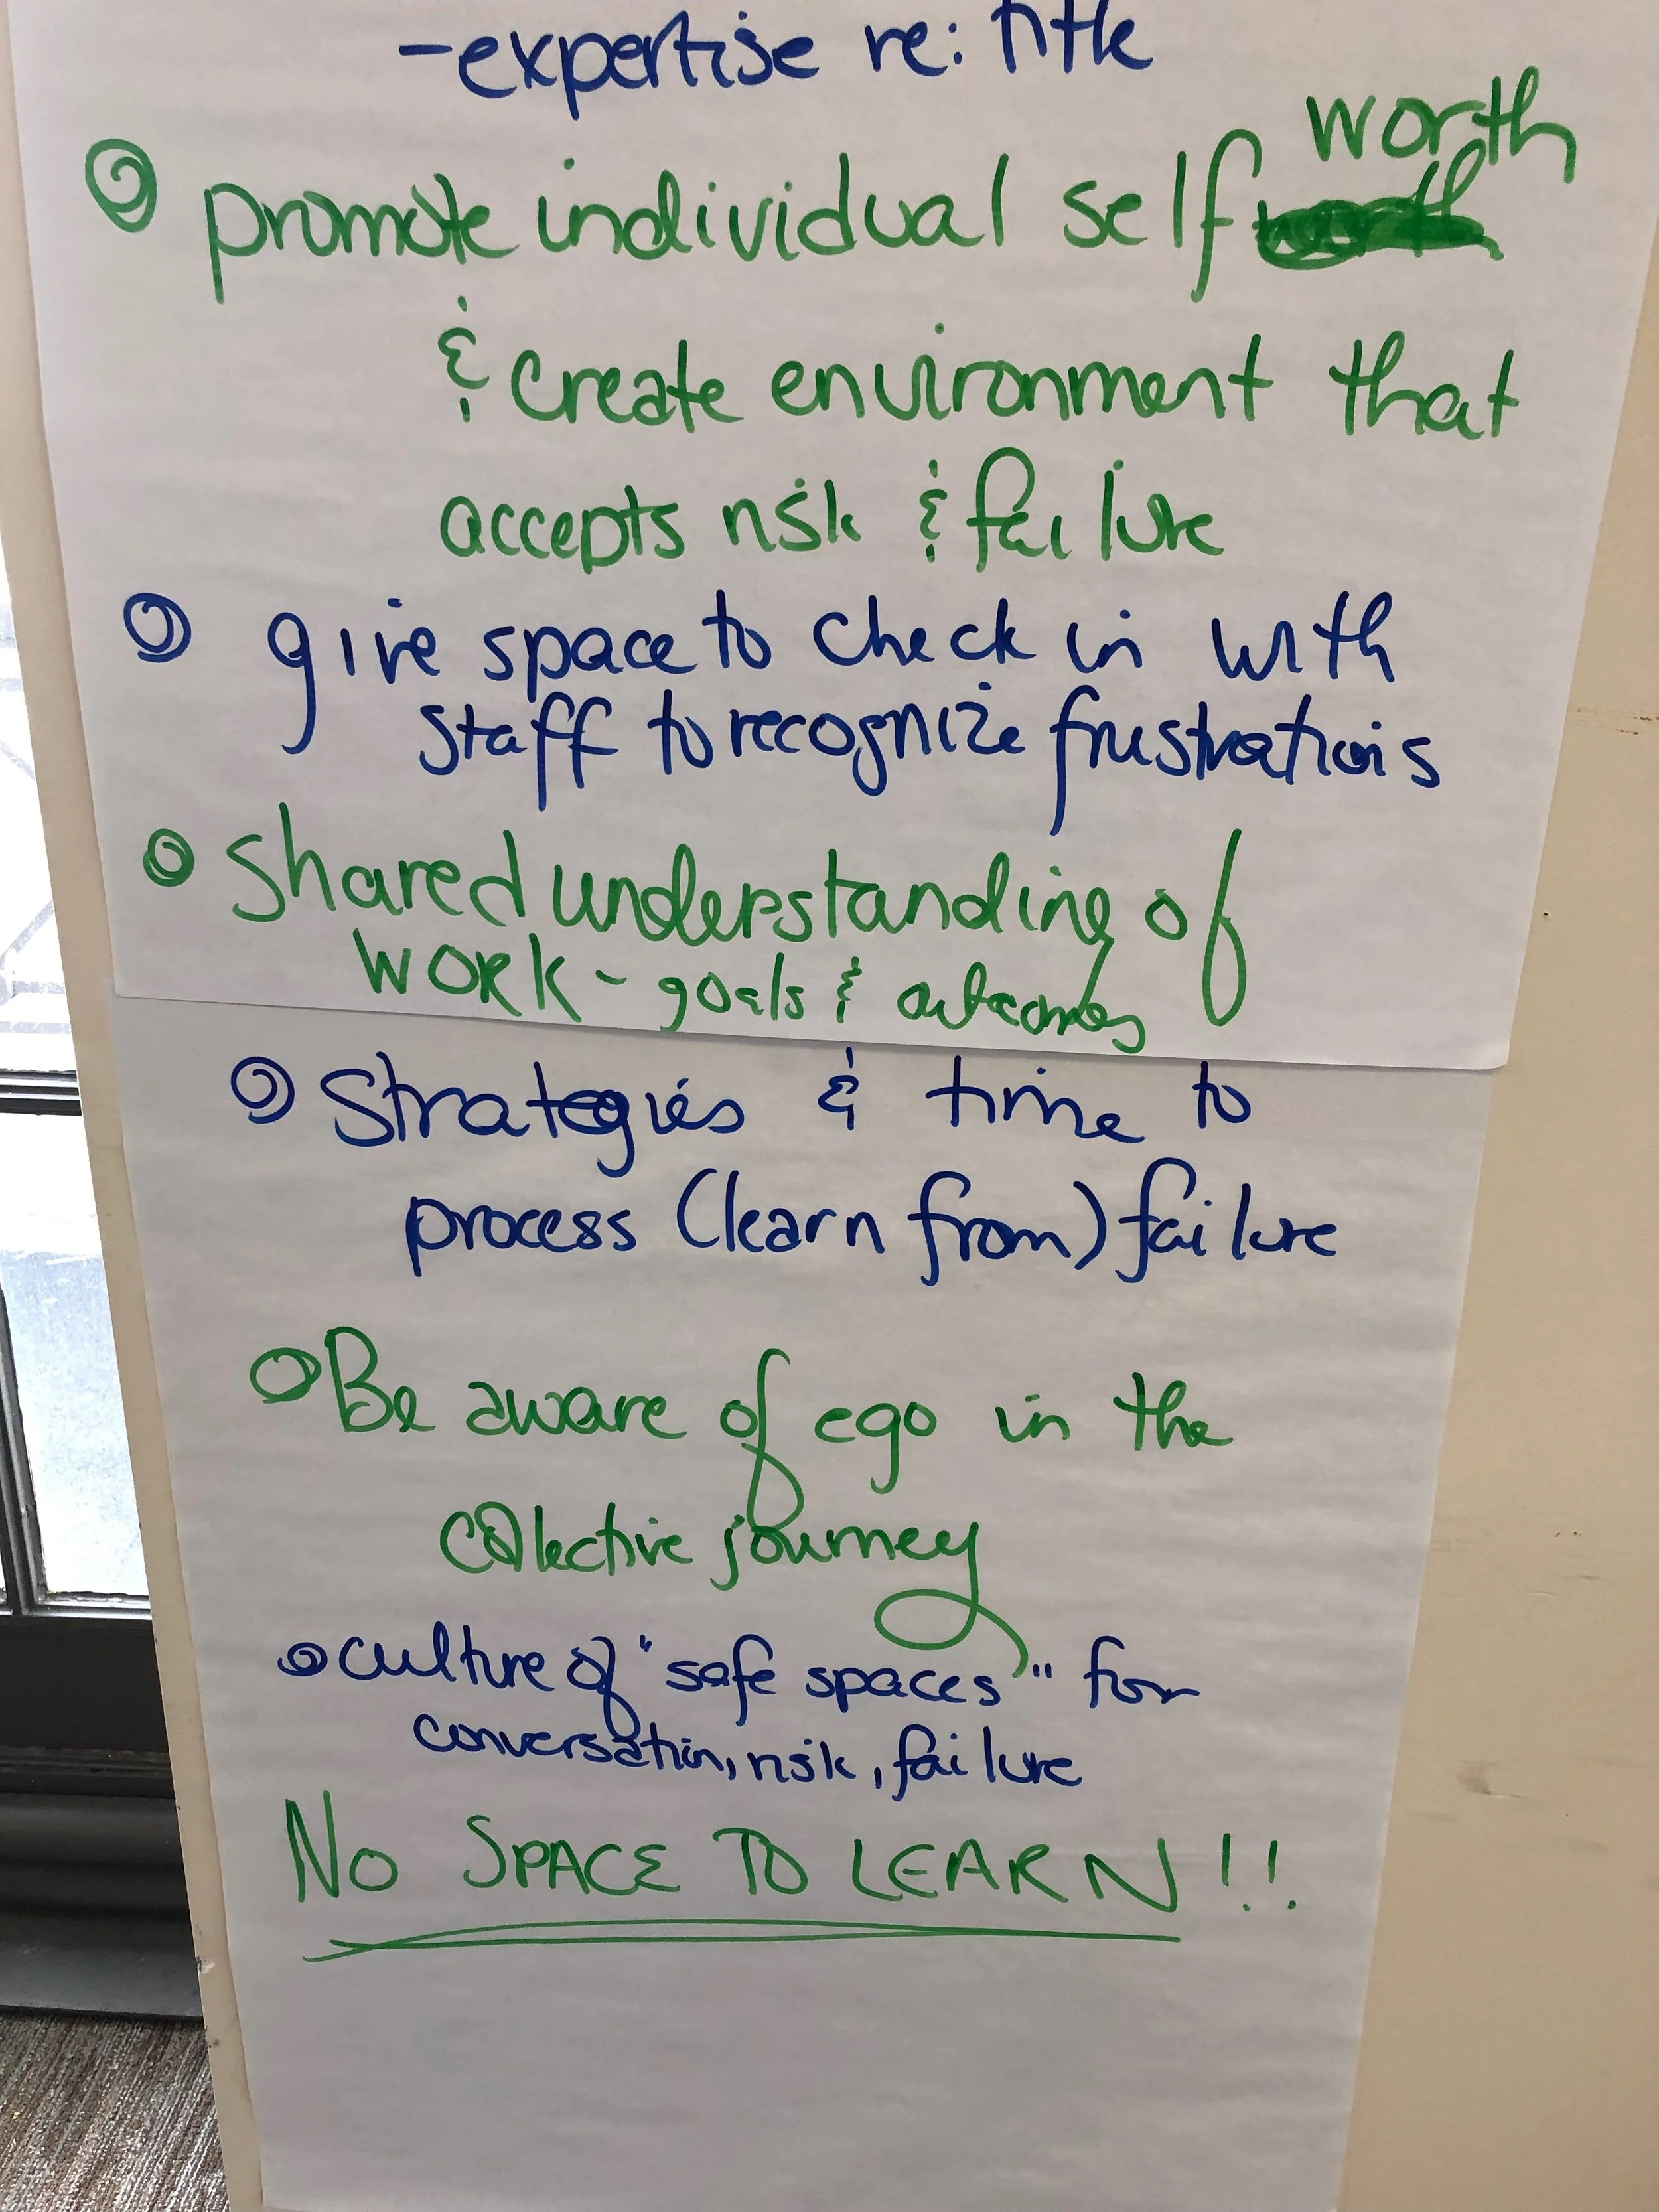 -expertise re: title
promote individual self worth
& create environment that
accepts risk & failure
give space to check in with
staff to recognize frustrations
Shared understanding of
WORK - goals & outcomes
Strategies & time to
process (learn from) failure
Be aware of ego in the
collective journey
culture of "safe spaces" for
conversation, risk, failure
NO SPACE TO LEARN!!